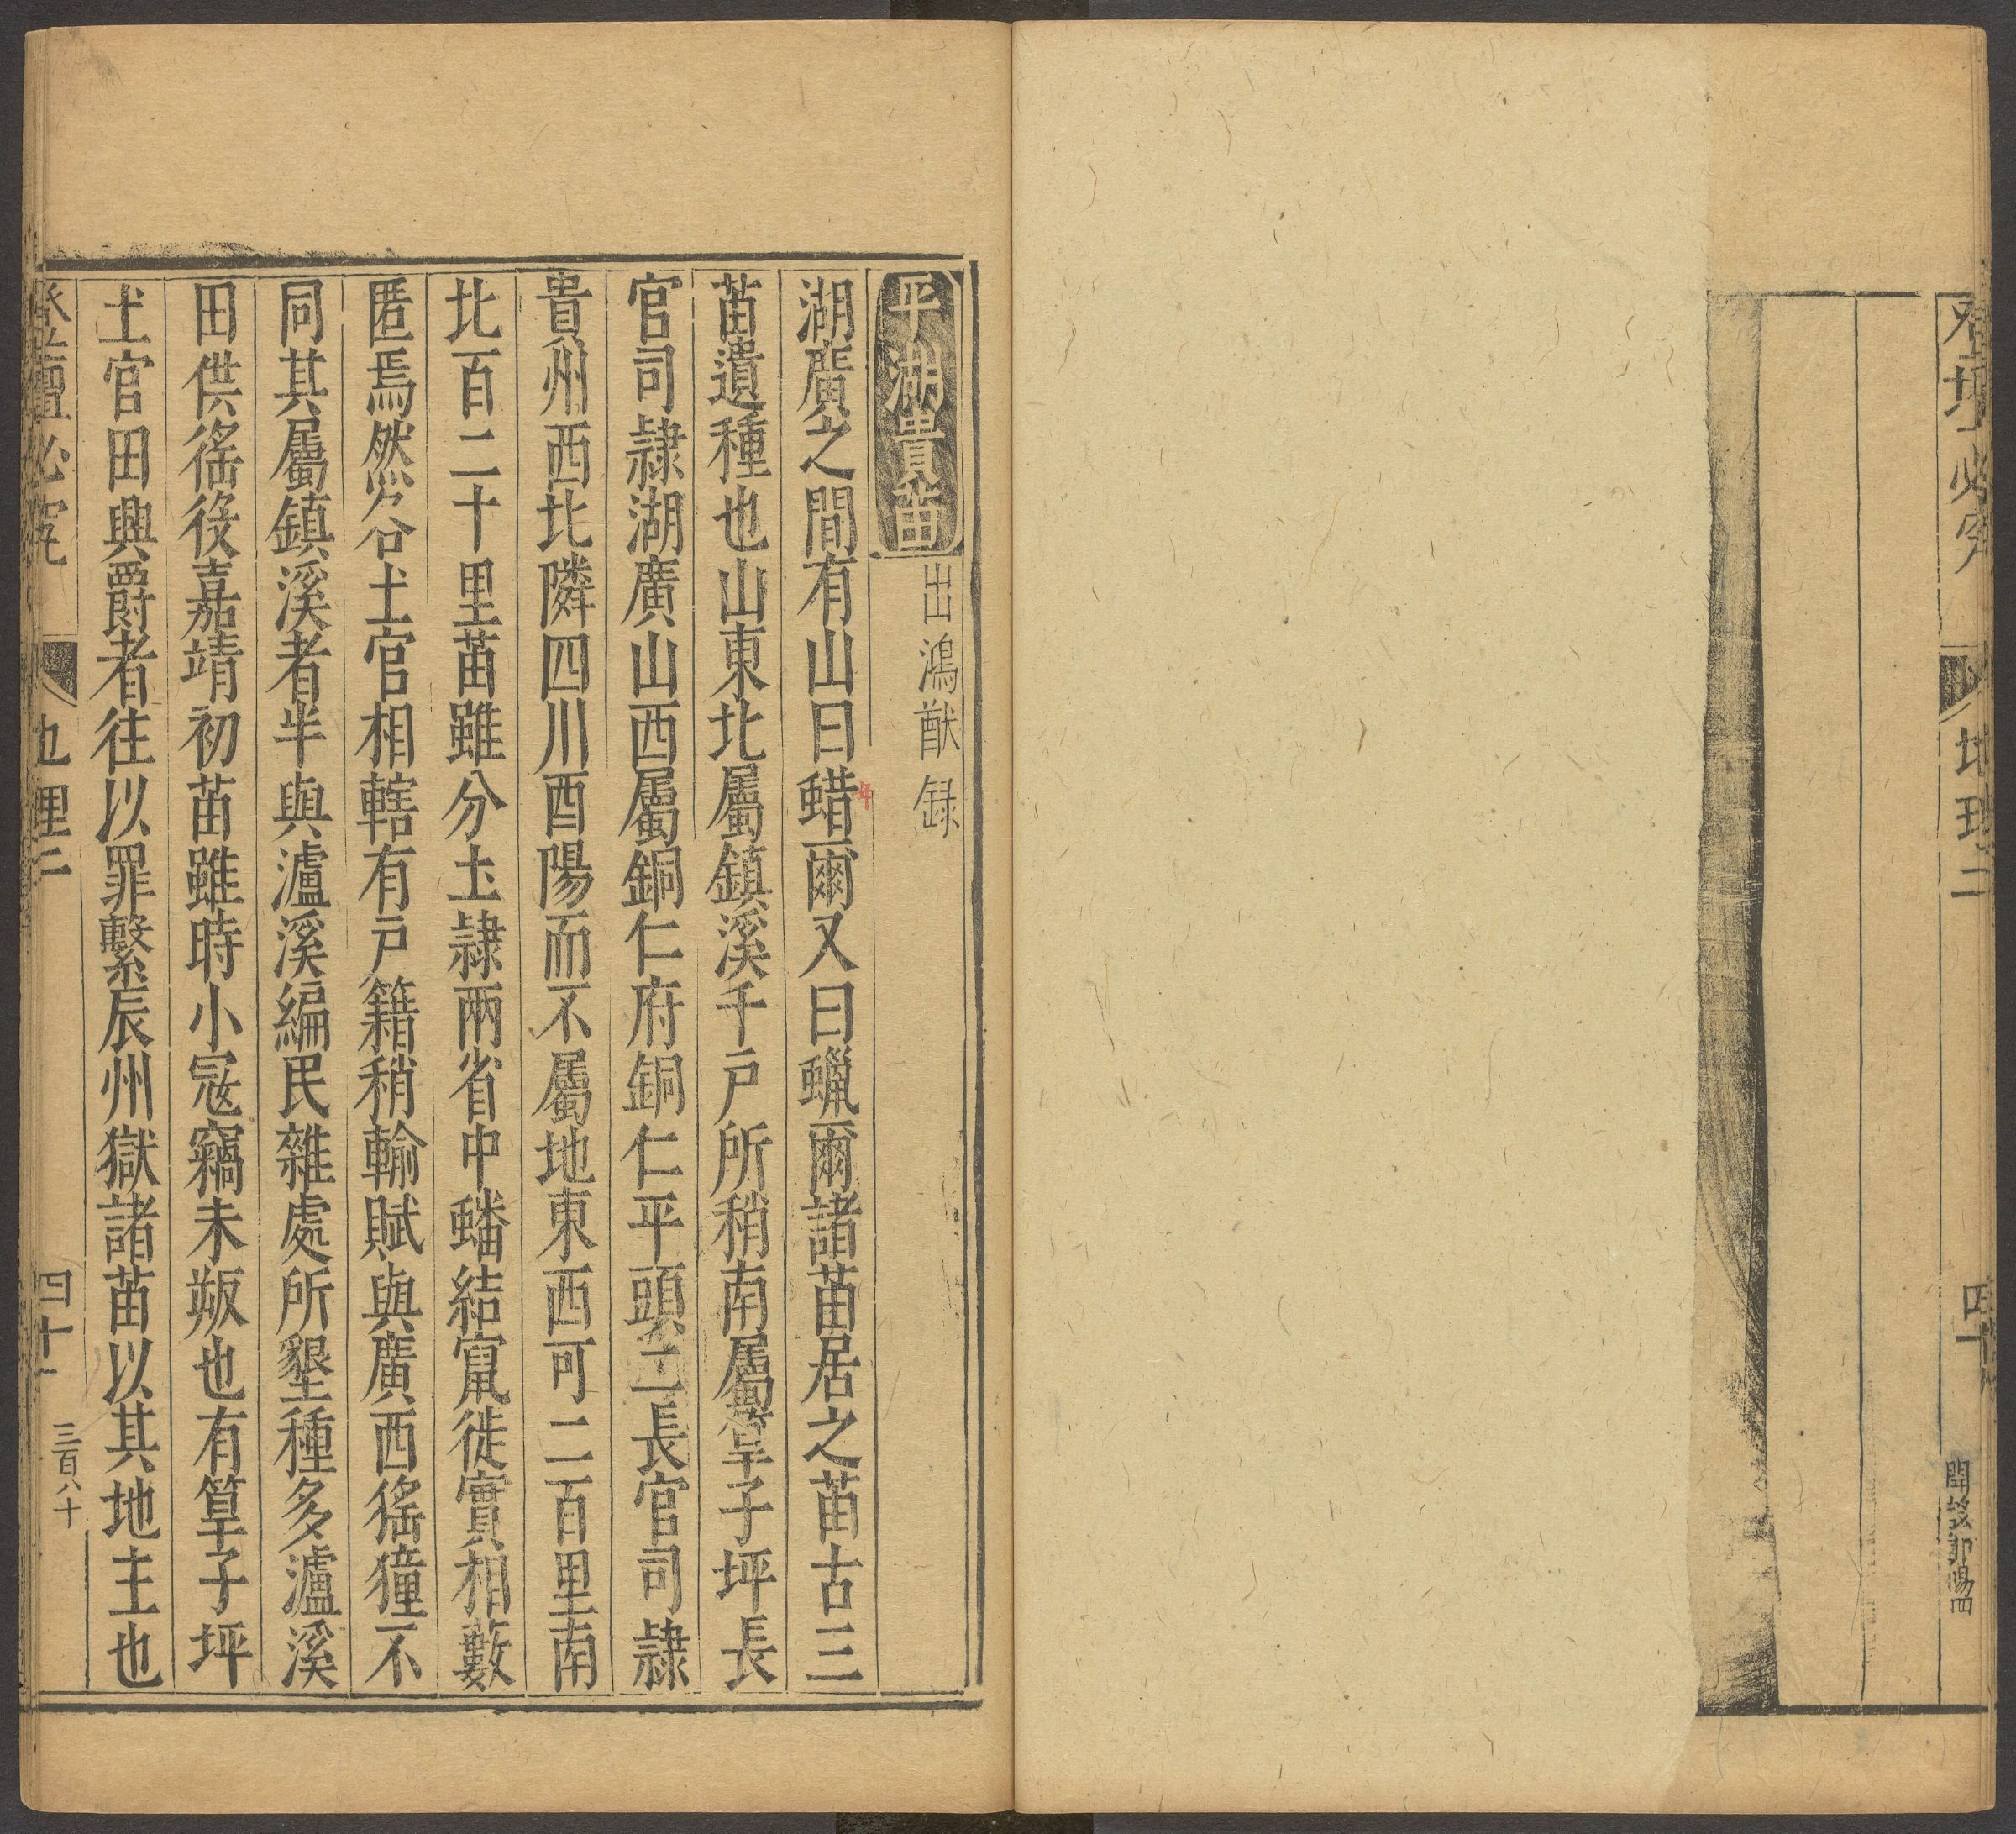 登壇必究
地理二
四十
平湖貴苗
出鴻猷録
湖廣之間有山曰蜡爾又曰蠟爾諸苗居之苗古三
苗遺種也山東北屬鎮溪千戶所稍南屬筸子坪長
官司隷湖廣山西屬銅仁府銅仁平頭二長官司隷
貴州西北隣四川酉陽而不屬地東西可二百里南
北百二十里苗雖分土隷兩省中蟠結竄徙實相藪
匿焉然各土官相轄有戶籍稍輸賦與廣西猺獞不
同其屬鎮溪者半與瀘溪編民雜處所墾種多瀘溪
田供徭役嘉靖初苗雖時小寇竊未叛也有筸子坪
土官田興爵者往以罪繫辰州獄諸苗以其地主也
登壇必究
地理二
四十一
三百八十